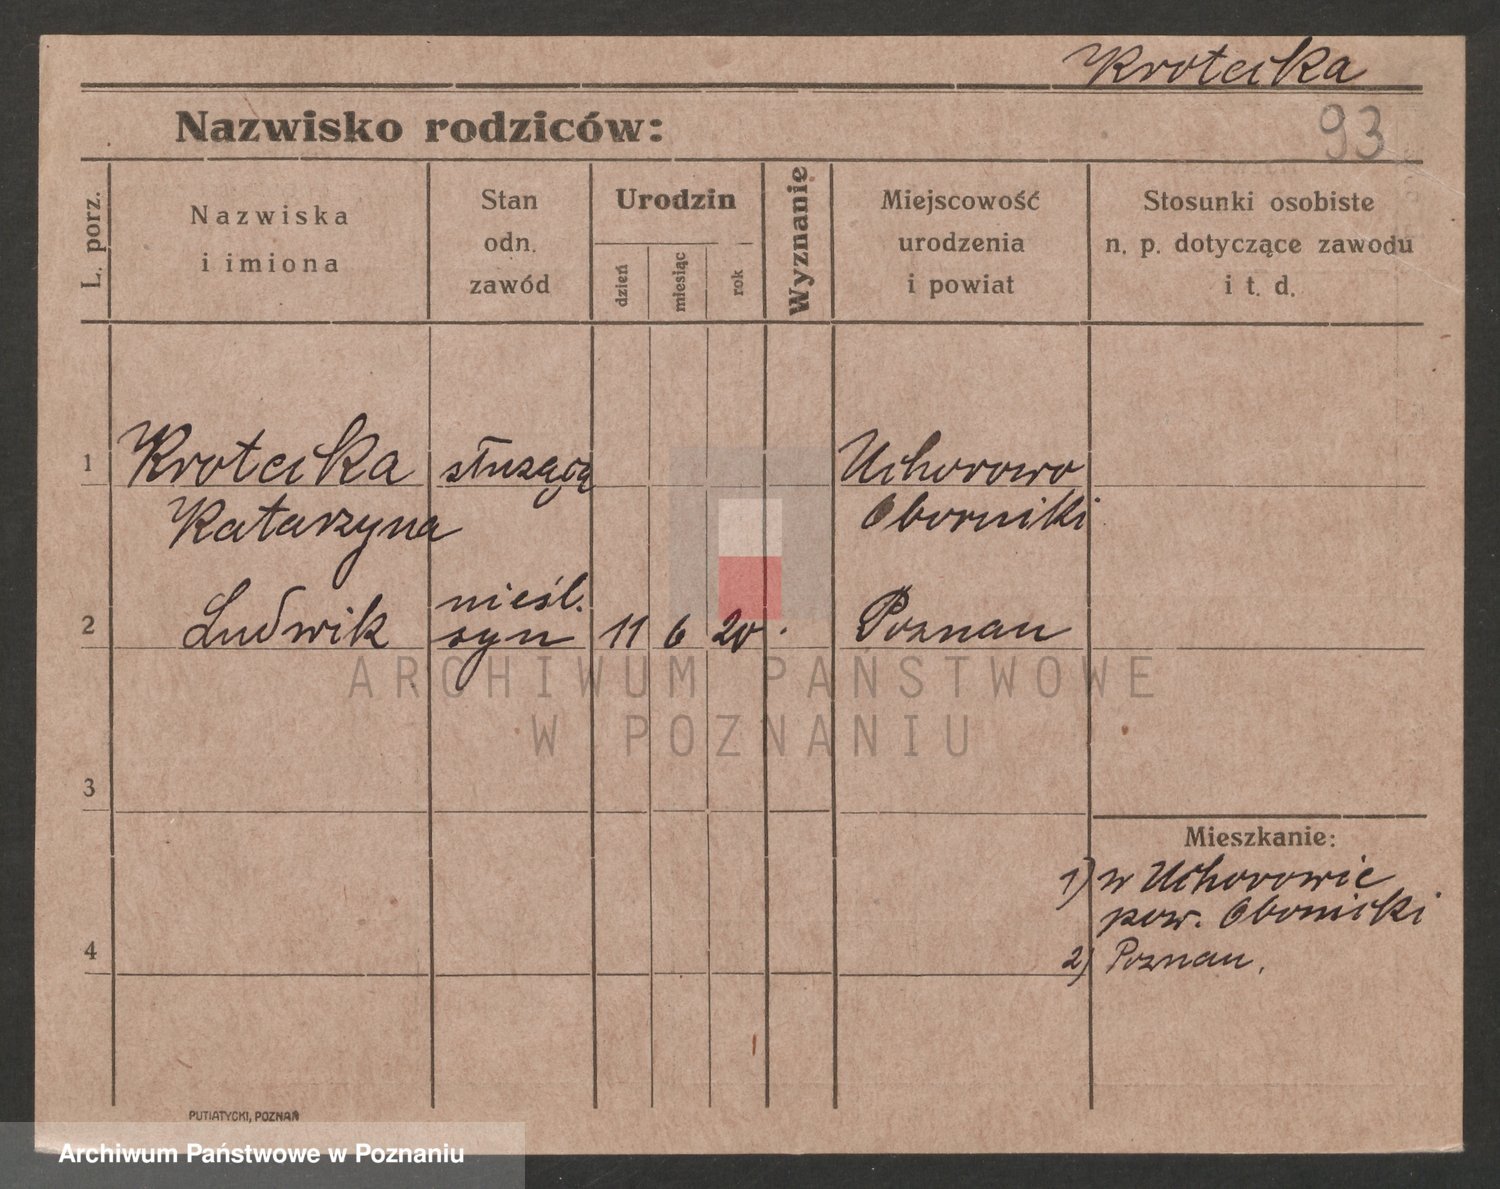 Krotecka
93
Nazwisko rodziców:
L. porz.
Nazwiska
i imiona
Stan
odn.
zawód
Urodzin
dzień
miesiąc
rok
Wyznanie
Miejscowość
urodzenia
i powiat
Stosunki osobiste
n. p. dotyczące zawodu
i t. d.
1 Krotecka służącą Uchorowo
Katarzyna Oborniki
nieśl.
2 Ludwik syn 11 6 20 Poznań
ARCHIWUM PAŃSTWOWE
W POZNANIU
3
Mieszkanie:
1) w Uchorowie
pow. Obornicki
4
2) Poznań.
PUTIATYCKI, POZNAŃ
Archiwum Państwowe w Poznaniu